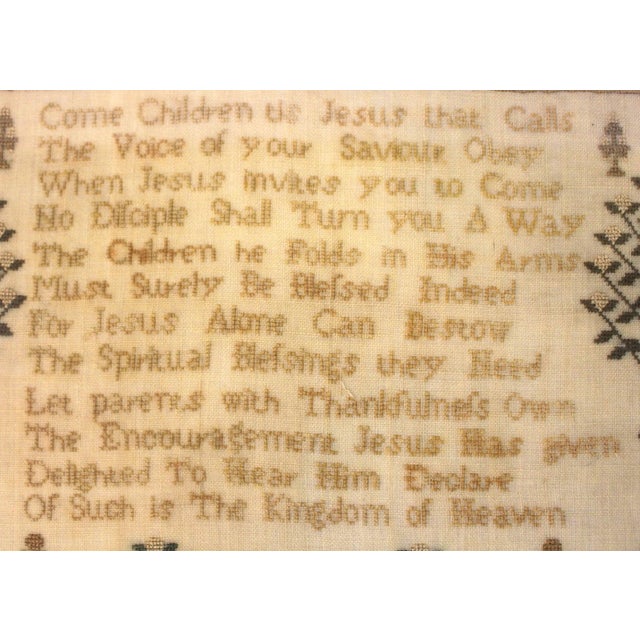 Come Children tis Jesus that Calls
The Voice of your Saviour Obey
When Jesus invites you to Come
No Diſciple Shall Turn you A Way
The Children he Folds in His Arms
Must Surely Be Bleſsed Indeed
For Jesus Alone Can Bestow
The Spiritual Bleſsings they Need
Let parents with Thankfulneſs Own
The Encouragement Jesus Has given
Delighted To Hear Him Declare
Of Such is The Kingdom of Heaven